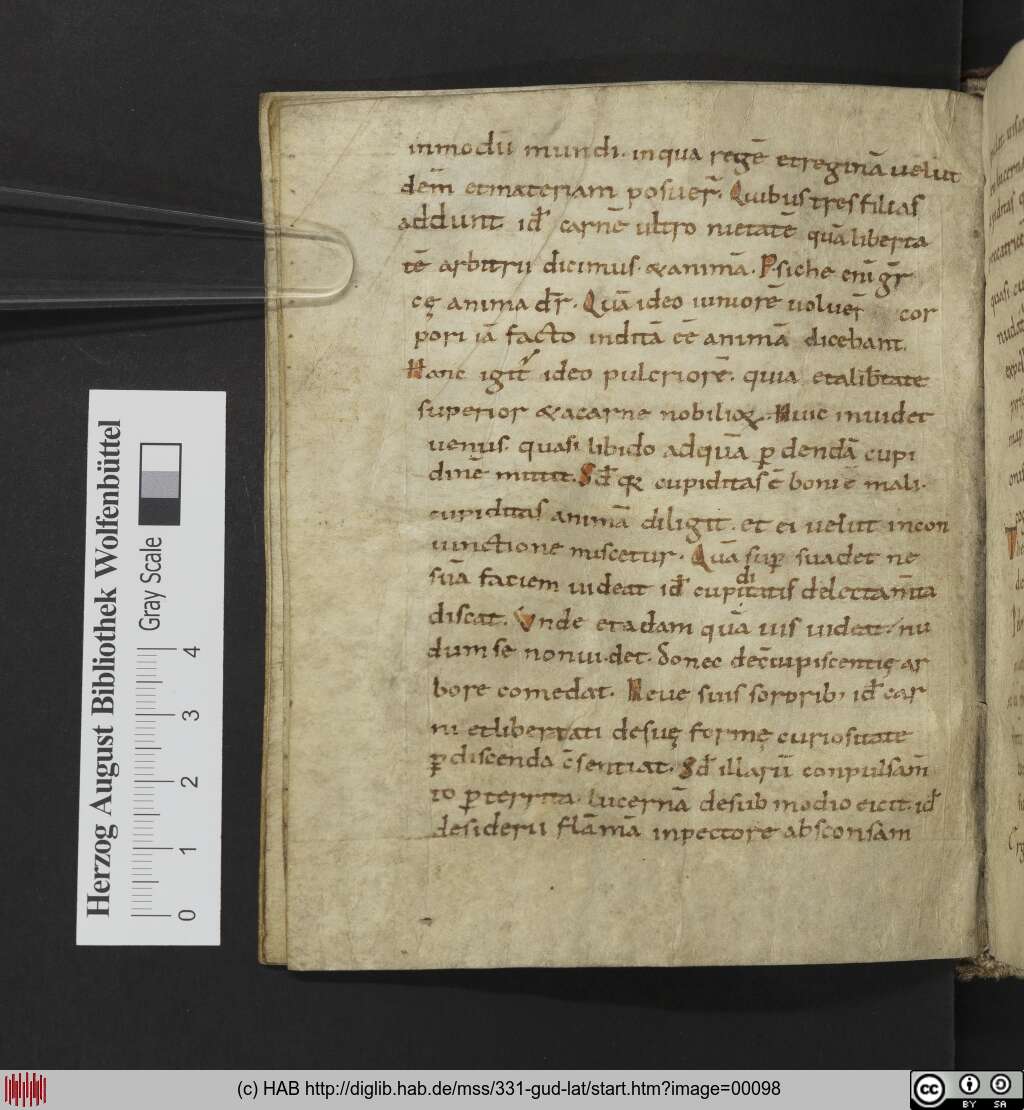 inmodū mundi. inqua regē etreginā uelut
dēm etmateriam posuer̄. Quibus tres filias
addunt id̄ carnē ultro nietatē quā liberta
tē arbitrii dicimus. & animā. Psiche eni gr̄
cę anima dr̄. Quā ideo iuniorē uoluer̄ cor
pori iā facto inditā eē animā dicebant.
Hanc igit̄ ideo pulcriorē. quia etalib̄tate
superior & acarne nobilior. Huic inuidet
uenus. quasi libido adquā ꝑdendā cupi
dinē mittit. Sd̄ qr cupiditas ē boni ē mali.
cupiditas animā diligit. et ei uelut incon
iunctione miscetur. Quā suꝑ suadet ne
suā faciem uideat id̄ cupiditatis delectam̄ta
discat. Vnde etadam quā uis uideat. nu
dum se non ui.det. donec dec̄cupiscentię ar
bore comedat. Neue suis sororib; id̄ car
ni etlibertati desuę formę curiositate
ꝑdiscenda c̄sentiat. Sd̄ illarū conpulsam̄
to ꝑterrita. lucernā desub modio eicit. id̄
desiderii flāmā inpectore absconsam
Herzog August Bibliothek Wolfenbüttel
Gray Scale
0 1 2 3 4
(c) HAB http://diglib.hab.de/mss/331-gud-lat/start.htm?image=00098
cc BY SA